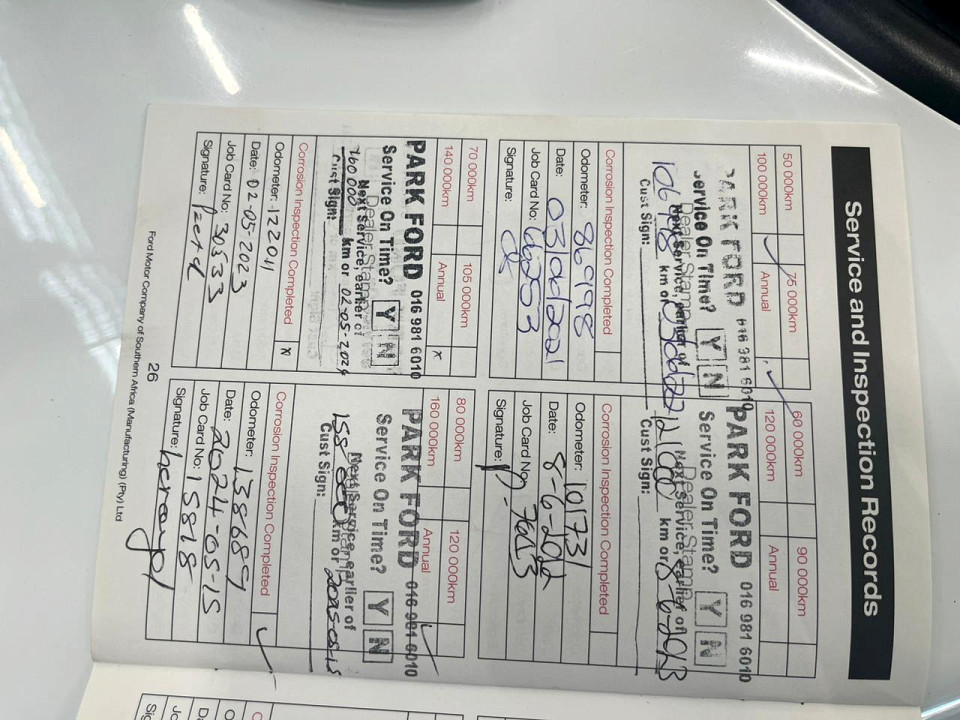 Service and Inspection Records
50 000km
75 000km
100 000km ✓
Annual
PARK FORD 016 981 6010
Service On Time? Y N
Dealer Stamp
Next Service, earlier of
km or
Cust Sign:
Corrosion Inspection Completed
Odometer: 86498
Date:
Job Card No: 66253
Signature:
60 000km
90 000km
120 000km
Annual
PARK FORD 016 981 6010
Service On Time? Y N
Dealer Stamp
Next Service, earlier of
km or 8-6-2023
Cust Sign:
Corrosion Inspection Completed
Odometer: 101731
Date: 8-6-2022
Job Card No:
Signature:
70 000km
105 000km
140 000km
Annual x
PARK FORD 016 981 6010
Service On Time? Y N
Dealer Stamp
Next Service, earlier of
160 000 km or 02-05-2024
Cust Sign:
Corrosion Inspection Completed x
Odometer: 122041
Date: 02-05-2023
Job Card No: 30533
Signature:
80 000km
120 000km
160 000km
Annual ✓
PARK FORD 016 981 6010
Service On Time? Y N
Next Service, earlier of
158 000 km or 2025-05-15
Cust Sign:
Corrosion Inspection Completed ✓
Odometer: 138689
Date: 2024-05-15
Job Card No: 15818
Signature:
26
Ford Motor Company of Southern Africa (Manufacturing) (Pty) Ltd